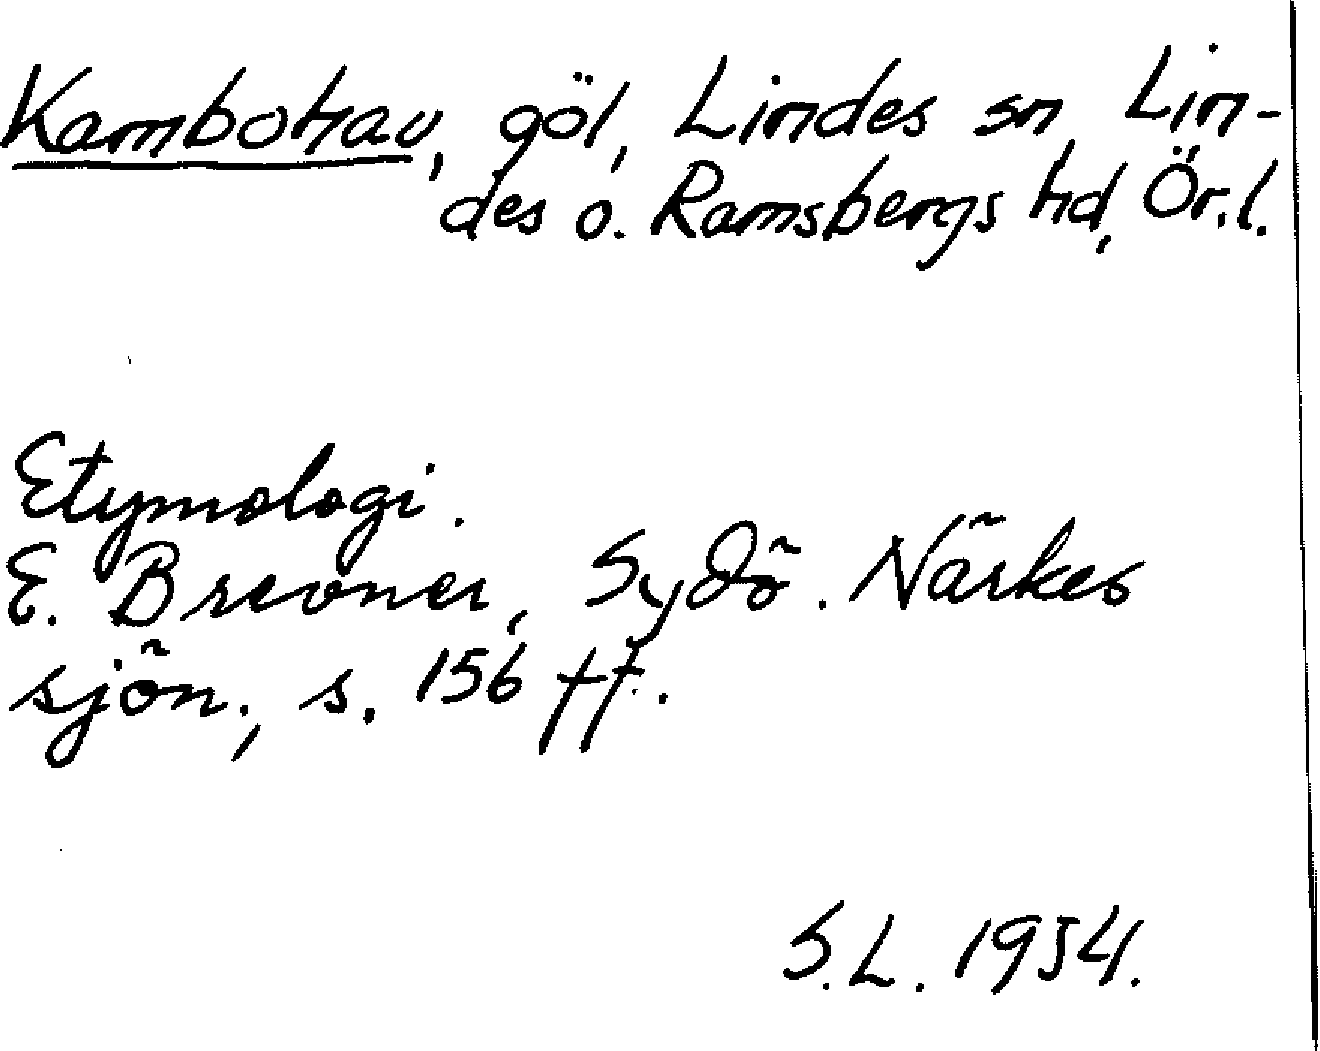 Kambohav, göl, Lindes sn, Lin-
des o. Ramsbergs hd, Ör. l.
Etymologi.
E. Brevner, Sydö. Närkes
sjön., s. 156 ff.
S.L. 1954.